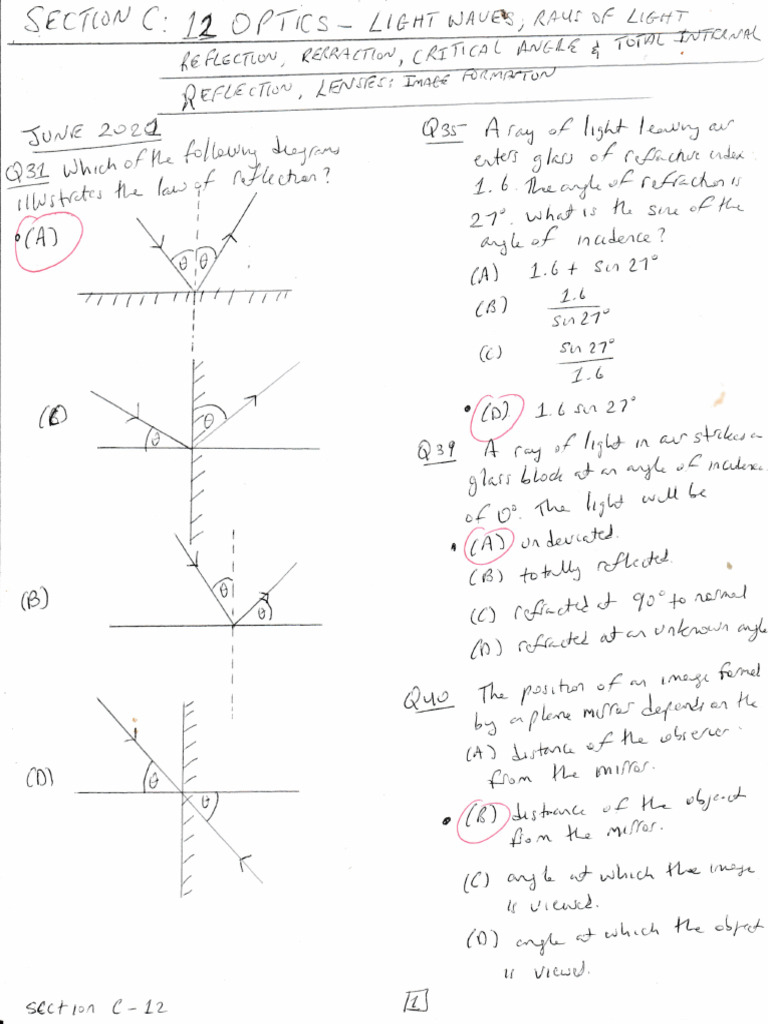 SECTION C: 12 OPTICS – LIGHT WAVES, RAYS OF LIGHT
REFLECTION, RERRACTION, CRITICAL ANGLE & TOTAL INTERNAL
REFLECTION, LENSES: IMAGE FORMATION
JUNE 2021
Q31 Which of the following diagrams
illustrates the law of reflection?
(A)
θ θ
(C)
θ
θ
(B)
θ
θ
(D)
θ
θ
Q35 A ray of light leaving air
enters glass of refractive index
1.6. The angle of refraction is
27°. What is the sine of the
angle of incidence?
(A) 1.6 + sin 27°
(B) 1.6
sin 27°
(C) sin 27°
1.6
(D) 1.6 sin 27°
Q39 A ray of light in air strikes a
glass block at an angle of incidence
of 0°. The light will be
(A) undeviated.
(B) totally reflected.
(C) refracted at 90° to normal
(D) refracted at an unknown angle
Q40 The position of an image formed
by a plane mirror depends on the
(A) distance of the observer
from the mirror.
(B) distance of the object
from the mirror.
(C) angle at which the image
is viewed.
(D) angle at which the object
is viewed.
Section C-12
1